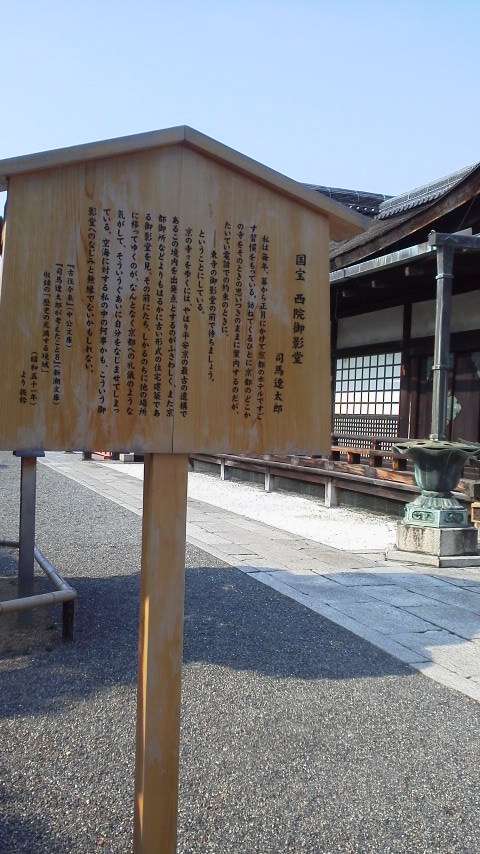 国宝 西院御影堂
司馬遼太郎
私は毎年、暮から正月にかけて京都のホテルですご
す習慣をもっている。訪ねてくるひとに京都のどこか
の寺をそのときの思いつきのままに案内するのだが、
たいてい電話での約束のときに、
――東寺の御影堂の前で待ちましょう。
ということにしている。
京の寺々を歩くには、やはり平安京の最古の遺構で
あるこの境内を出発点とするのがふさわしく、また京
都御所などよりもはるかに古い形式の住宅建築であ
る御影堂を見、その前にたち、しかるのちに他の場所
に移ってゆくのが、なんとなく京都への礼儀のような
気がして、そういうぐあいに自分をなじませてしまっ
ている。空海に対する私の中の何事かも、こういう御
影堂へのなじみと無縁でないかもしれない。
『古往今来』（中公文庫）
『司馬遼太郎が考えたこと8』（新潮文庫）
収録の「歴史の充満する境域」
（昭和五十一年）
より 抜粋